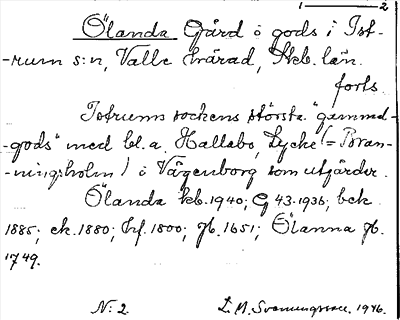 1 — 2
Ölanda Gård o gods i Ist-
-rum s:n, Valle härad, Skb. län.
forts.
Istrums sockens största "gammel-
-gods" med bl.a. Hallabo, Lycke (= Bran-
-ningsholm) o Vägenborg som utgårdar.
Ölanda kb. 1940; G 43. 1936; bek
1885; ek. 1880; hf. 1800; jb. 1651; Ölanna jb.
1749.
N: 2.
L. M. Svenungsson. 1946.